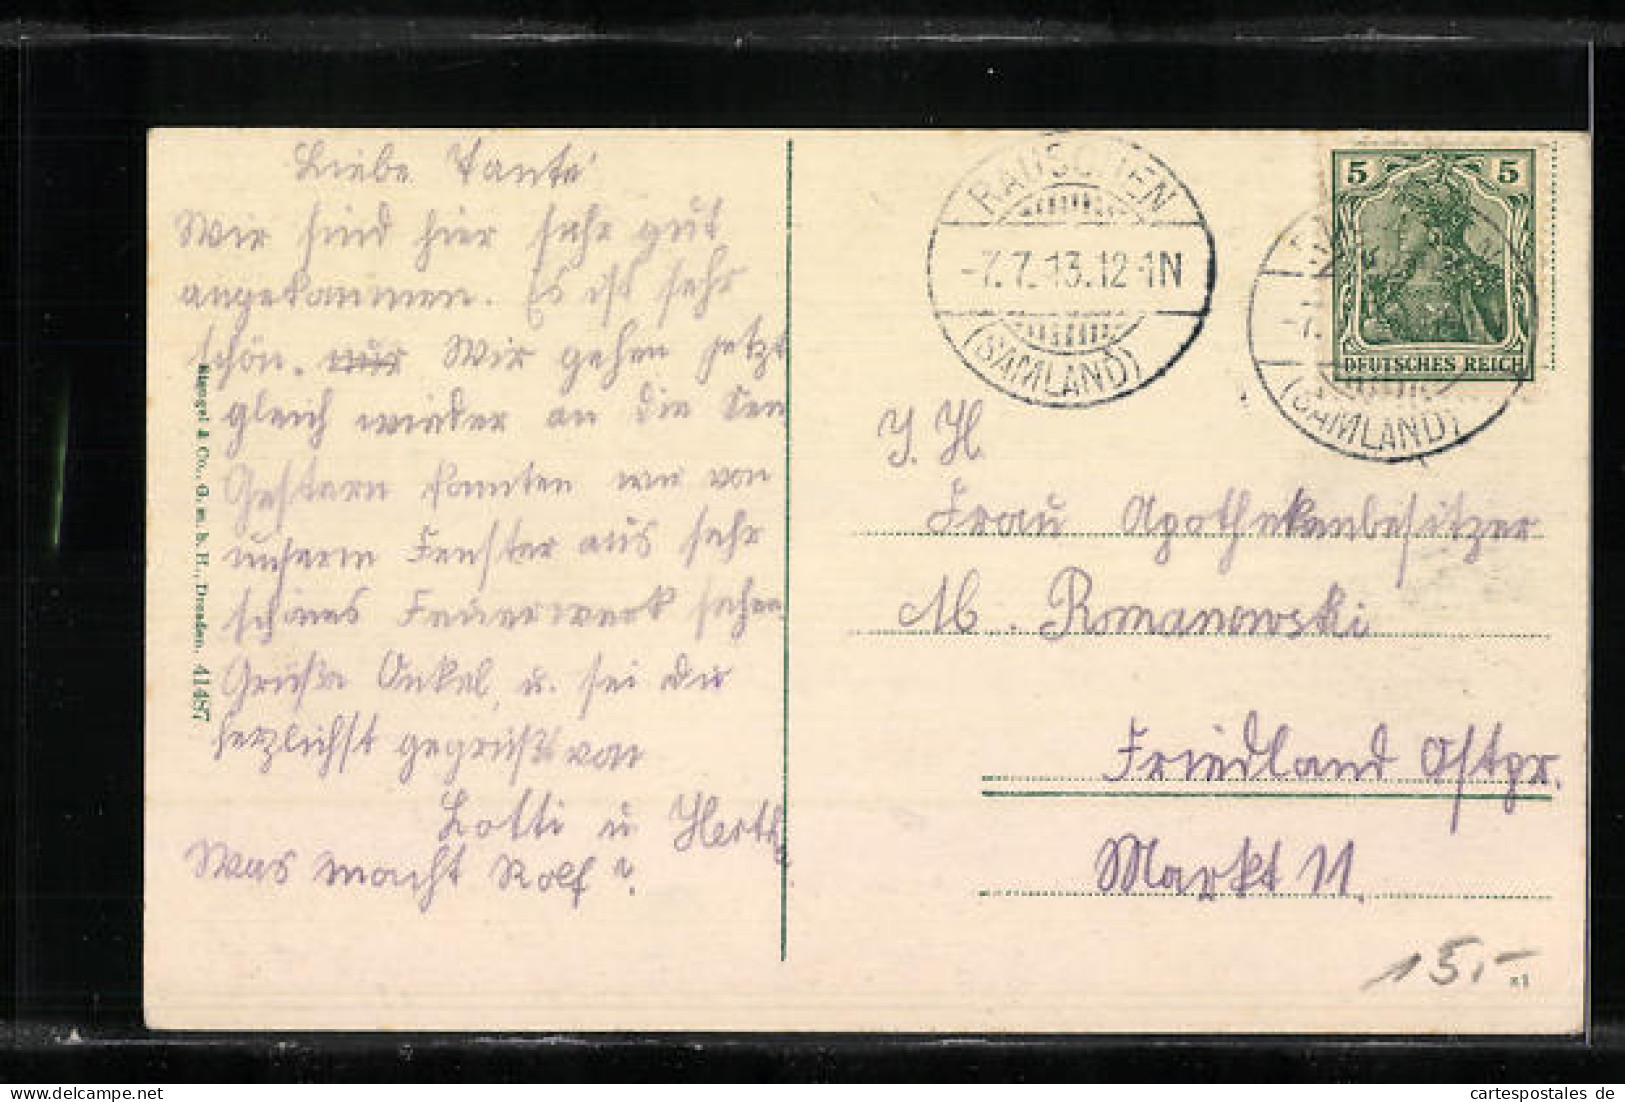 Liebe Tante!
Wir sind hier sehr gut
angekommen. Es ist sehr
schön. nur Wir gehen jetzt
gleich wieder an die See
Gestern konnten wir von
unserm Fenster aus sehr
schönes Feuerwerk sehen
Grüße Onkel u. sei du
herzlichst gegrüßt von
Lotti u Herta
Was macht Rolf?
Stengel & Co., G. m. b. H., Dresden. 41487
RAUSCHEN
-7.7.13.12-1N
(SAMLAND)
5 5
DEUTSCHES REICH
-7.
(SAMLAND)
I. H.
Frau Apothekenbesitzer
M. Romanowski
Friedland Ostpr.
Markt 11.
15,-
cartespostales de